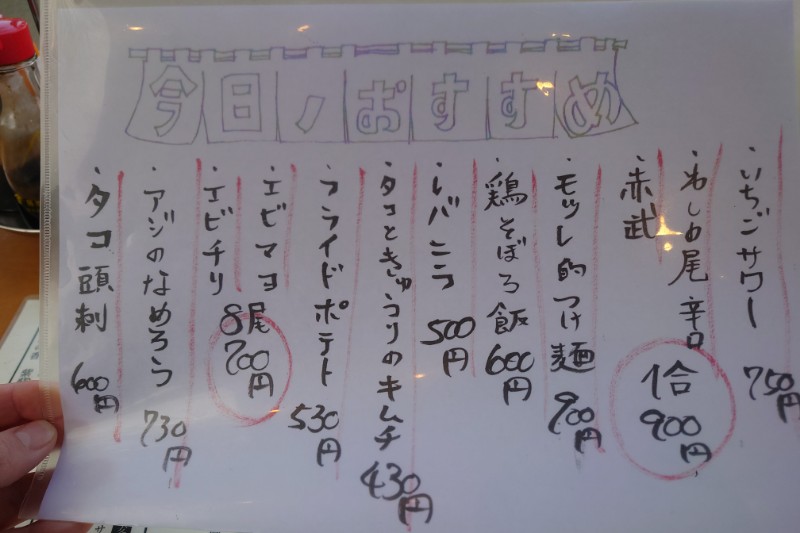 今日ノおすすめ
・いちごサワー 750円
・わしの尾 辛口
・赤武
1合 900円
・モツレ的つけ麺 900円
・鶏そぼろ飯 600円
・レバニラ 500円
・タコときゅうりのキムチ 430円
・フライドポテト 530円
・エビマヨ
・エビチリ
8尾 700円
・アジのなめろう 730円
・タコ頭刺 600円